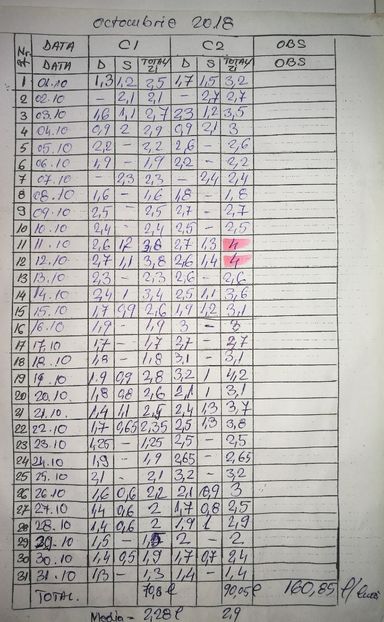 octombrie 2018
Nr. crt. DATA C1 C2 OBS
DATA D S TOTAL/zi D S TOTAL/zi OBS
1 01.10 1,3 1,2 2,5 1,7 1,5 3,2
2 02.10 - 2,1 2,1 - 2,7 2,7
3 03.10 1,6 1,1 2,7 2,3 1,2 3,5
4 04.10 0,9 2 2,9 0,9 2,1 3
5 05.10 2,2 - 2,2 2,6 - 2,6
6 06.10 1,9 - 1,9 2,2 - 2,2
7 07.10 - 2,3 2,3 - 2,4 2,4
8 08.10 1,6 - 1,6 1,8 - 1,8
9 09.10 2,5 - 2,5 2,7 - 2,7
10 10.10 2,4 - 2,4 2,5 - 2,5
11 11.10 2,6 1,2 3,8 2,7 1,3 4
12 12.10 2,7 1,1 3,8 2,6 1,4 4
13 13.10 2,3 - 2,3 2,6 - 2,6
14 14.10 2,4 1 3,4 2,5 1,1 3,6
15 15.10 1,7 0,9 2,6 1,9 1,2 3,1
16 16.10 1,9 - 1,9 3 - 3
17 17.10 1,7 - 1,7 2,7 - 2,7
18 18.10 1,8 - 1,8 3,1 - 3,1
19 19.10 1,9 0,9 2,8 3,2 1 4,2
20 20.10 1,8 0,8 2,6 2,1 1 3,1
21 21.10. 1,4 1,1 2,5 2,4 1,3 3,7
22 22.10 1,7 0,65 2,35 2,5 1,3 3,8
23 23.10 1,25 - 1,25 2,5 - 2,5
24 24.10 1,9 - 1,9 2,65 - 2,65
25 25.10 2,1 - 2,1 3,2 - 3,2
26 26.10 1,6 0,6 2,2 2,1 0,9 3
27 27.10 1,4 0,6 2 1,7 0,8 2,5
28 28.10 1,4 0,6 2 1,9 1 2,9
29 29.10 1,5 - 1,5 2 - 2
30 30.10 1,4 0,5 1,9 1,7 0,7 2,4
31 31.10 1,3 - 1,3 1,4 - 1,4
TOTAL. 70,8 l 90,05 l 160,85 l/lună
Media - 2,28 l 2,9